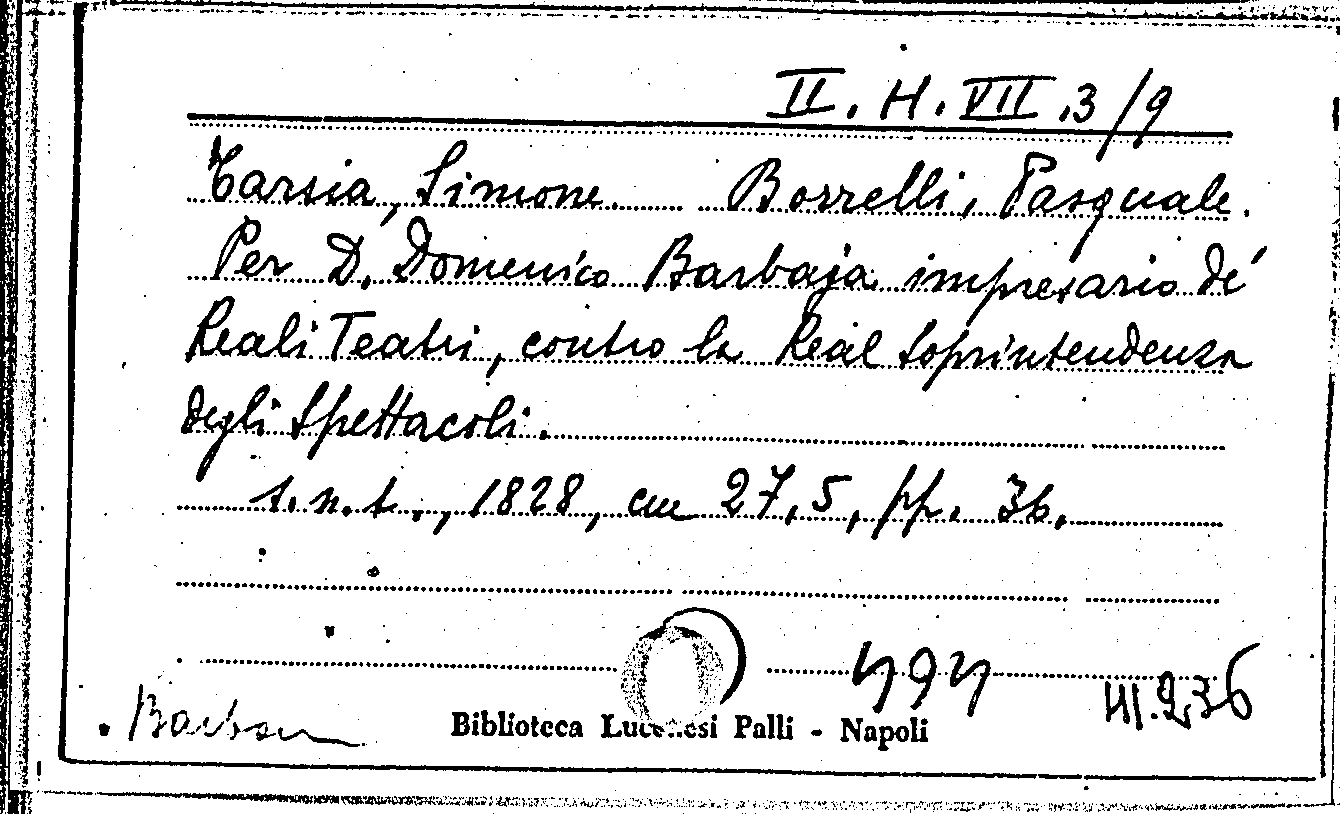 II. H. VII .3/9
Tarsia, Simone. Borrelli, Pasquale.
Per D. Domenico Barbaja impresario de'
Reali Teatri, contro la Real Soprintendenza
degli Spettacoli.
s.n.t., 1828, cm 27,5, pp. 36.
III.236
Biblioteca Lucchesi Palli - Napoli